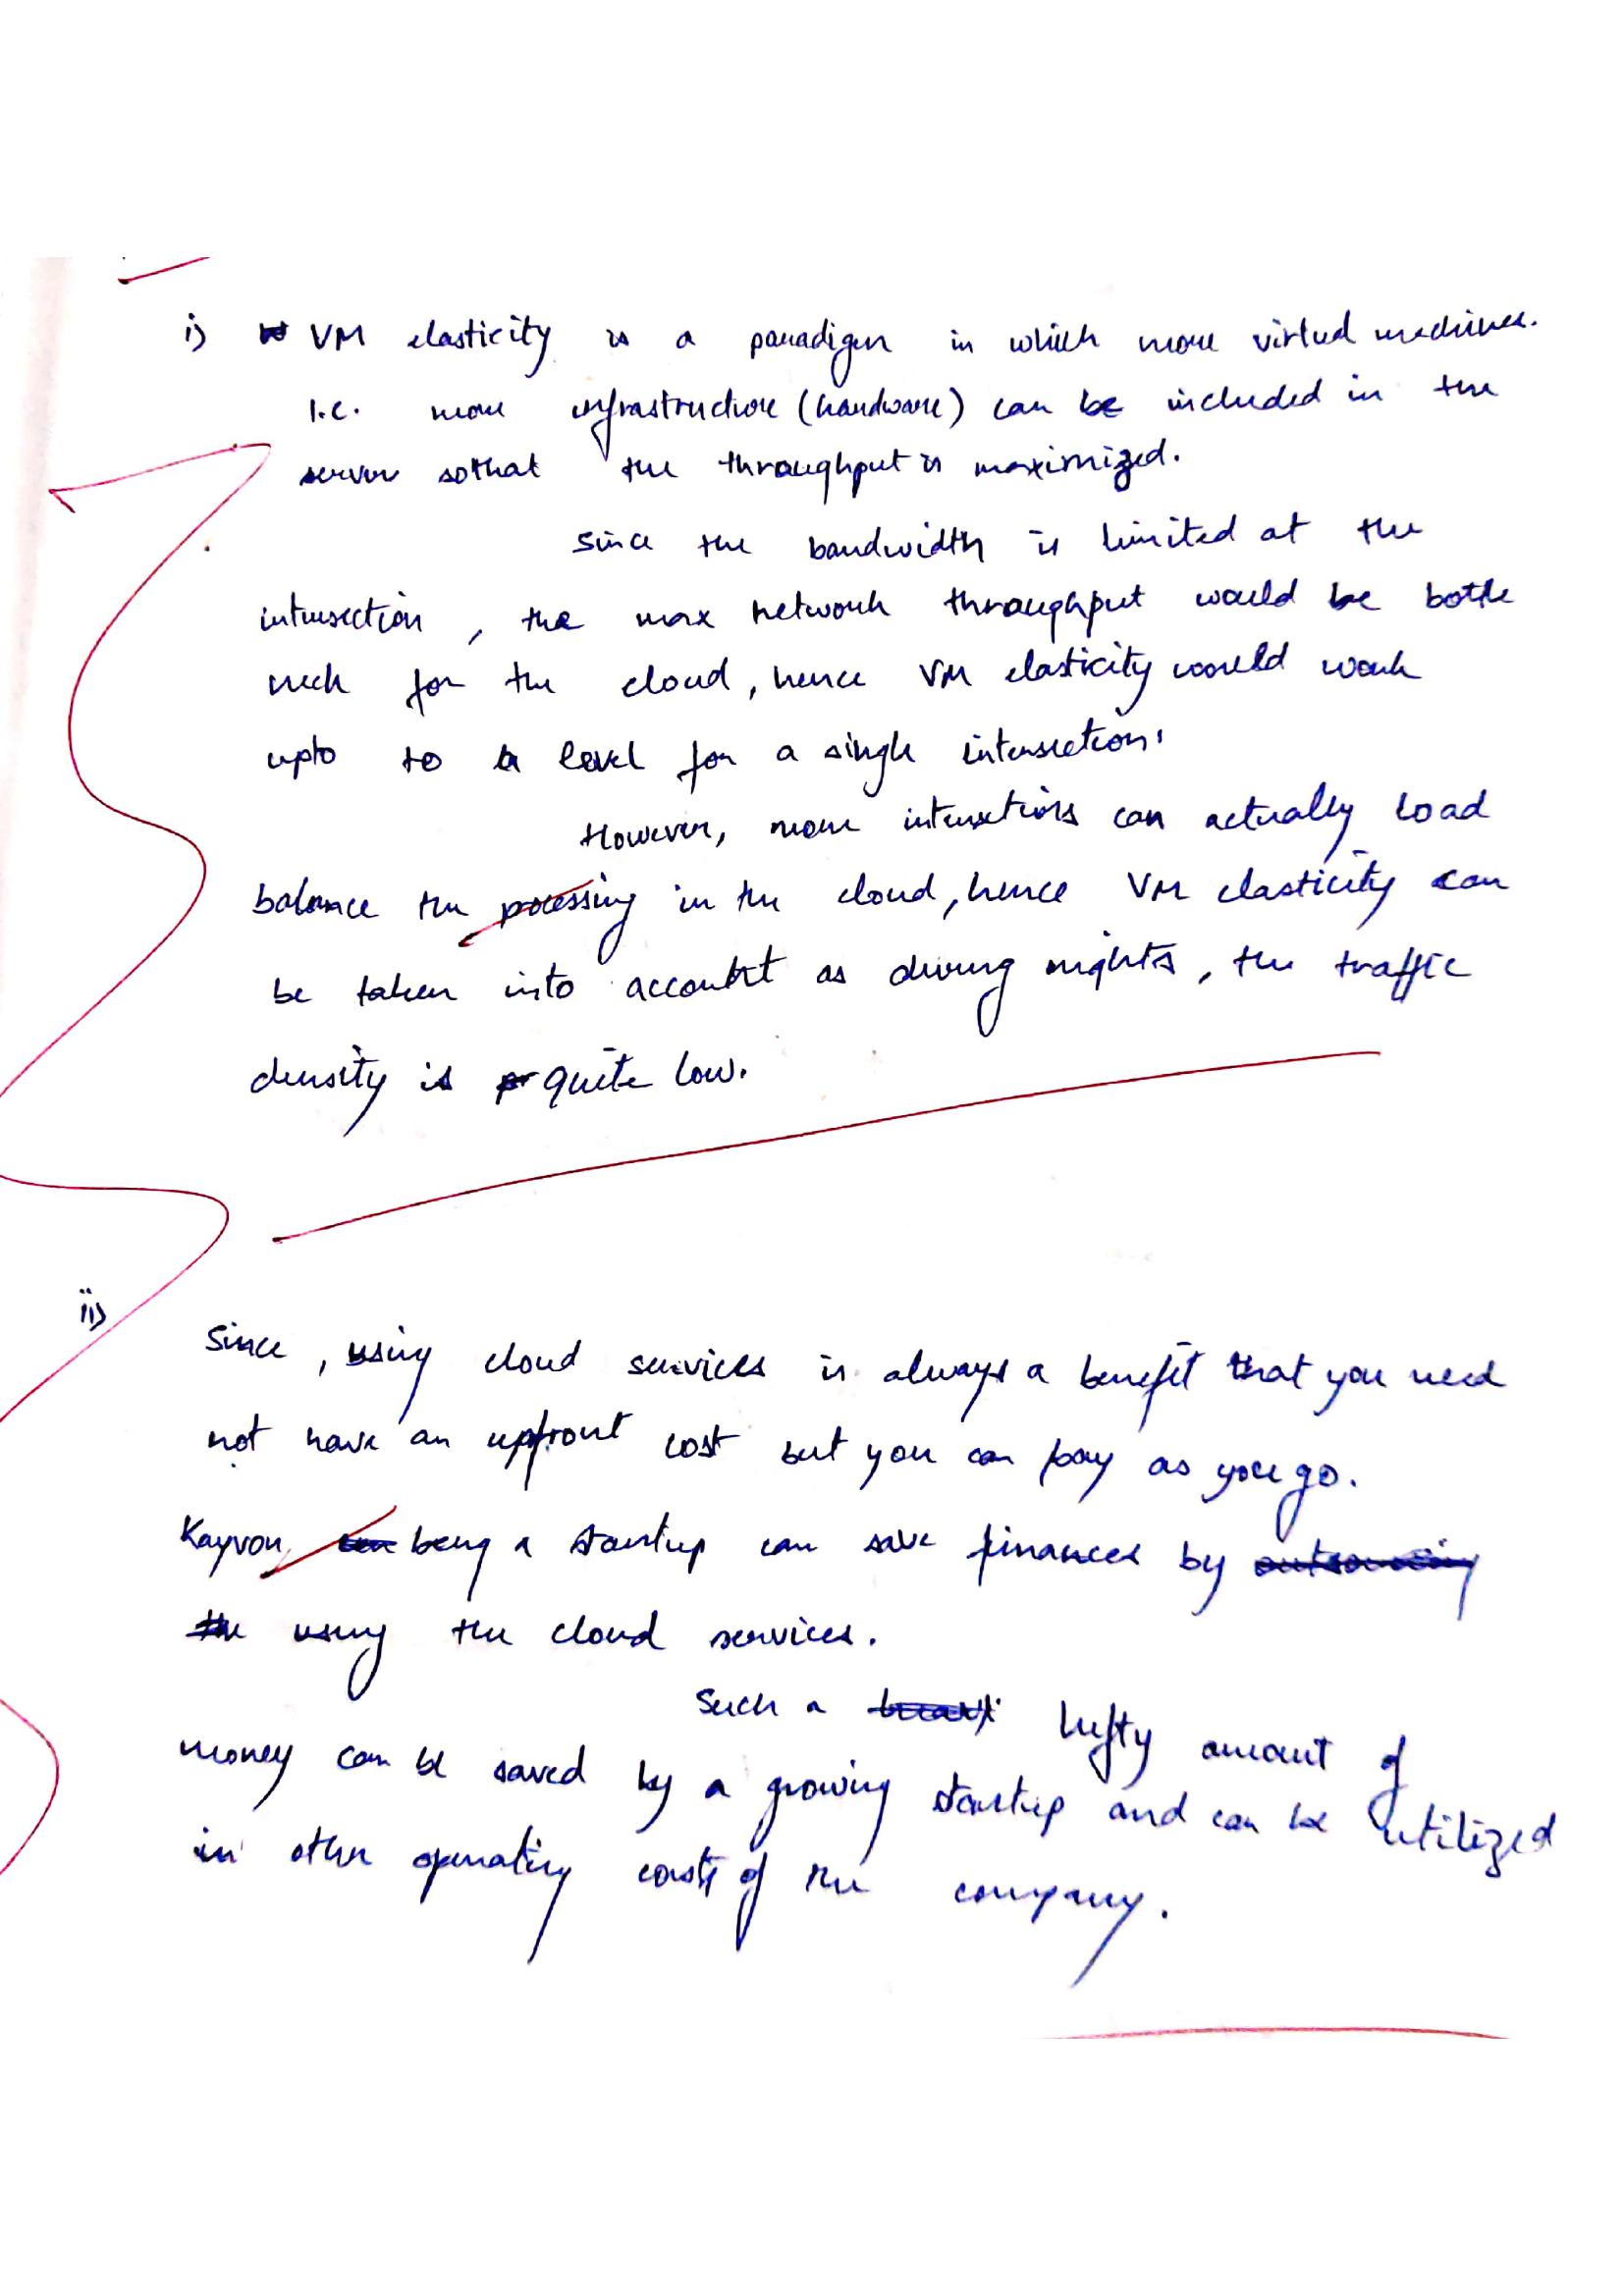 i) VM elasticity is a paradigm in which more virtual machines.
I.e. more infrastructure (hardware) can be included in the
server so that the throughput is maximized.
Since the bandwidth is limited at the
intersection, the max network throughput would be bottle
neck for the cloud, hence VM elasticity would work
upto to a level for a single intersection.
However, more intersections can actually load
balance the processing in the cloud, hence VM elasticity can
be taken into account as during nights, the traffic
density is quite low.
ii)
Since, using cloud services is always a benefit that you need
not have an upfront cost but you can pay as you go.
Kayvon being a startup can save finances by
using the cloud services.
Such a hefty amount of
money can be saved by a growing startup and can be utilized
in other operating costs of the company.